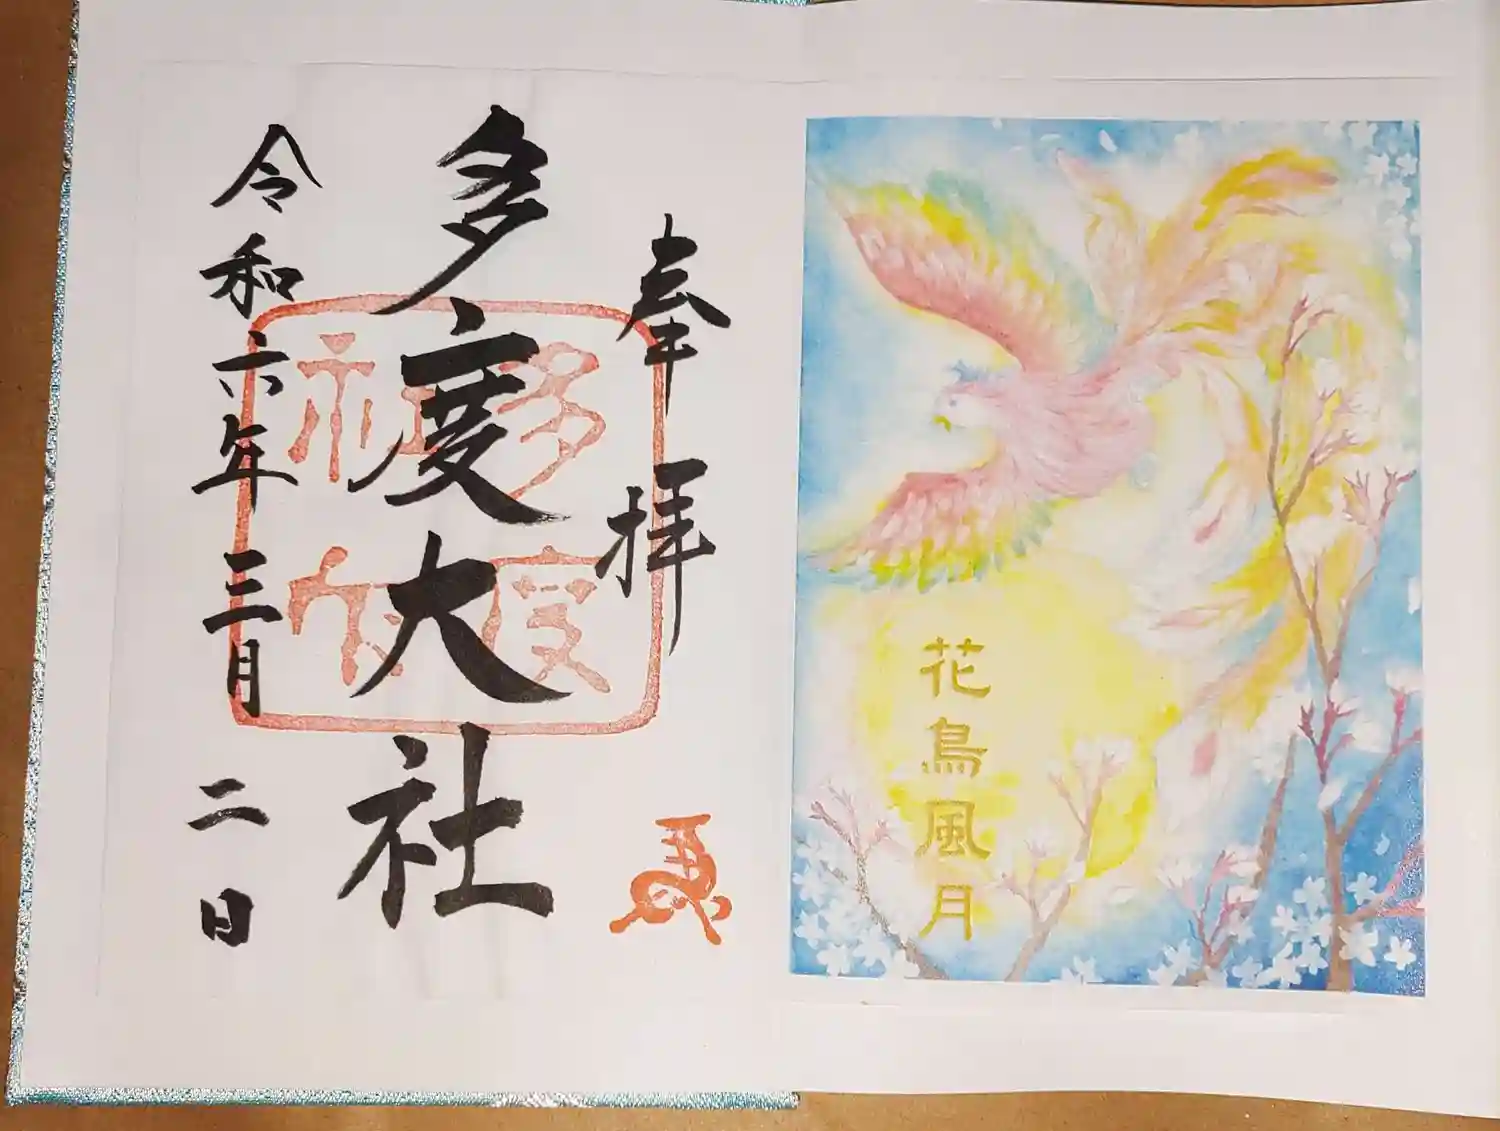 奉拝
多度大社
令和六年三月二日
多度
大社
花鳥風月